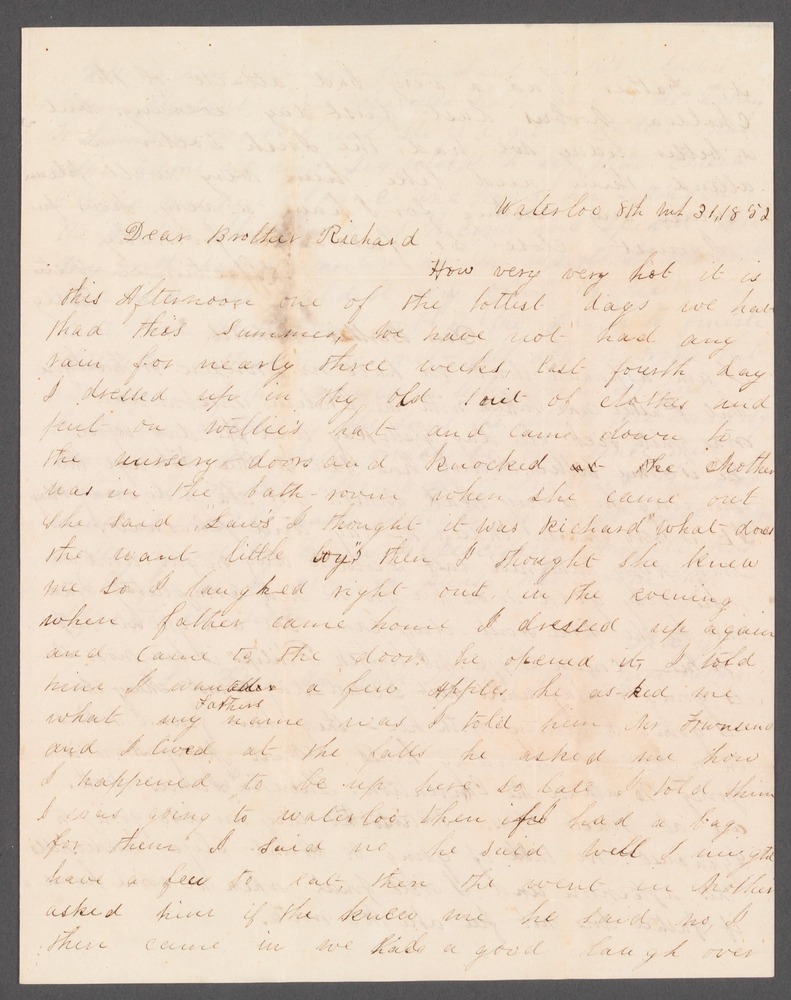 Waterloo 8th Mh 31, 1852
Dear Brother Richard
How very very hot it is
this Afternoon one of the hottest days we have
thad this Summer, we have not had any
rain for nearly three weeks, last fourth day
I dressed up in thy old suit of clothes and
put on Willie's hat and came down to
the nursery doors and knocked at the Mother
was in the bath-room when she came out
she said, "Laws I thought it was Richard" what does
the want little boy"? then I thought she knew
me so I laughed right out. in the evening
when father came home I dressed up again
and came to the door. he opened it, I told
him I wanted a few Apples he as-ked me
what my Fathers name was I told him Mr Townsend
and I lived at the falls he asked me how
I happened to be up here so late I told him
I was going to waterloo then if I had a bag
for them I said no he said well I might
have a few to eat, then the went in Mother
asked him if the knew me he said no, I
then came in we had a good laugh over